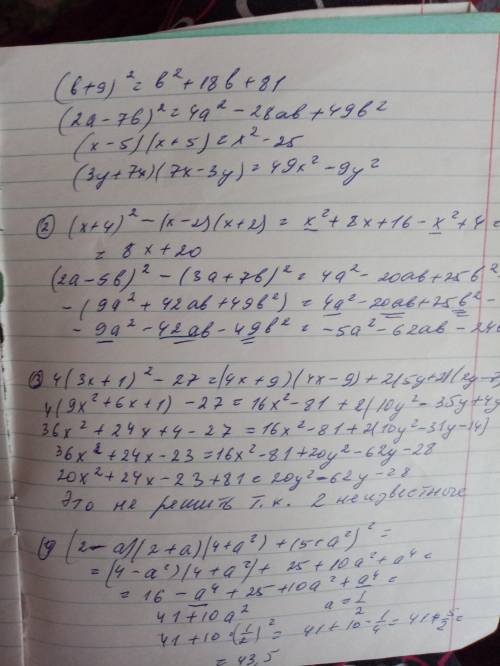 (b+9)² = b² + 18b + 81
(2a - 7b)² = 4a² - 28ab + 49b²
(x - 5)(x + 5) = x² - 25
(3y + 7x)(7x - 3y) = 49x² - 9y²
② (x+4)² - (x-2)(x+2) = x² + 8x + 16 - x² + 4 =
= 8x + 20
(2a - 5b)² - (3a + 7b)² = 4a² - 20ab + 25b²
- (9a² + 42ab + 49b²) = 4a² - 20ab + 25b² -
- 9a² - 42ab - 49b² = -5a² - 62ab - 24b
③ 4(3x+1)² - 27 = (4x+9)(4x-9) + 2(5y+2)(2y-7
4(9x² + 6x + 1) - 27 = 16x² - 81 + 2(10y² - 35y + 4y
36x² + 24x + 4 - 27 = 16x² - 81 + 2(10y² - 31y - 14)
36x² + 24x - 23 = 16x² - 81 + 20y² - 62y - 28
20x² + 24x - 23 + 81 = 20y² - 62y - 28
Это не решить т.к. 2 неизвестные
④ (2 - a)(2 + a)(4 + a²) + (5 + a²)² =
= (4 - a²)(4 + a²) + 25 + 10a² + a⁴ =
= 16 - a⁴ + 25 + 10a² + a⁴ =
41 + 10a² a = 1/2
41 + 10·(1/2)² = 41 + 10·1/4 = 41 + 5/2 =
= 43,5